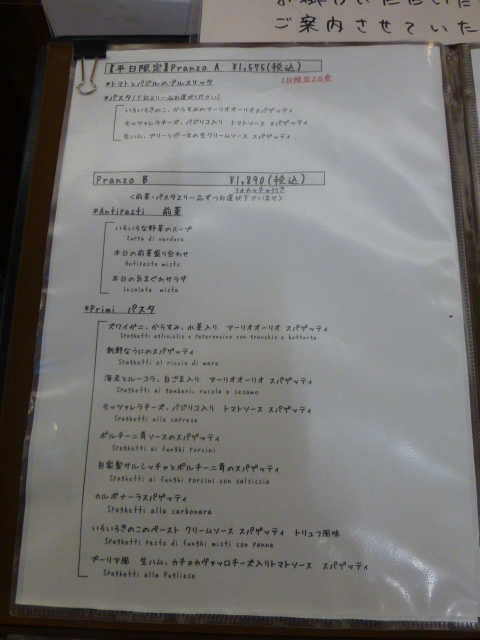 ご案内させていた
【平日限定】Pranzo A ¥1,575(税込)
1日限定20食
*トマトとバジルのブルスケッタ
*パスタ(下記より一品お選びください)
いろいろきのこ、からすみのアーリオオーリオスパゲッティ
モッツァレラチーズ、バジリコ入り トマトソース スパゲッティ
生ハム、グリーンピースの生クリームソース スパゲッティ
Pranzo B ¥1,890(税込)
フォカッチャ付き
<前菜・パスタより一品ずつお選び下さいませ>
*Antipasti 前菜
いろいろな野菜のスープ
Zuppa di verdura
本日の前菜盛り合わせ
Antipasto misto
本日の気まぐれサラダ
Insalata mista
*Primi パスタ
ズワイガニ、からすみ、水菜入り アーリオオーリオ スパゲッティ
Spaghetti aglio,olio e peperoncino con granchio e bottarga
新鮮なうにのスパゲッティ
Spaghetti al riccio di mare
海老とルーコラ、白ごま入り アーリオオーリオ スパゲッティ
Spaghetti ai gamberi, rucola e sesamo
モッツァレラチーズ、バジリコ入り トマトソース スパゲッティ
Spaghetti alla caprese
ポルチーニ茸ソースのスパゲッティ
Spaghetti ai funghi porcini
自家製サルシッチャとポルチーニ茸のスパゲッティ
Spaghetti ai funghi porcini con salsiccia
カルボナーラスパゲッティ
Spaghetti alla carbonara
いろいろきのこのペースト クリームソース スパゲッティ トリュフ風味
Spaghetti pesto di funghi misti con panna
プーリア風 生ハム、カチョカヴァッロチーズ入りトマトソース スパゲッティ
Spaghetti alla Pugliese